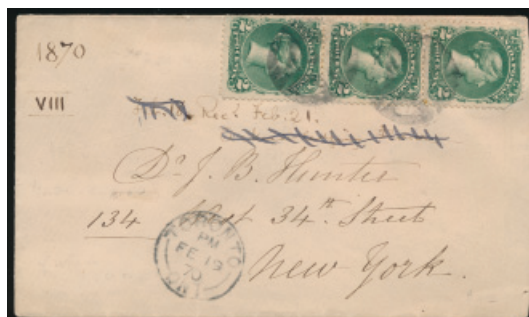 1870
VIII
Rec'd Feb. 21.
Dr J. B. Hunter
134 West 34th Street
New York.
TORONTO
PM
FE 19
70
ONT
2 2
2 2
2 2